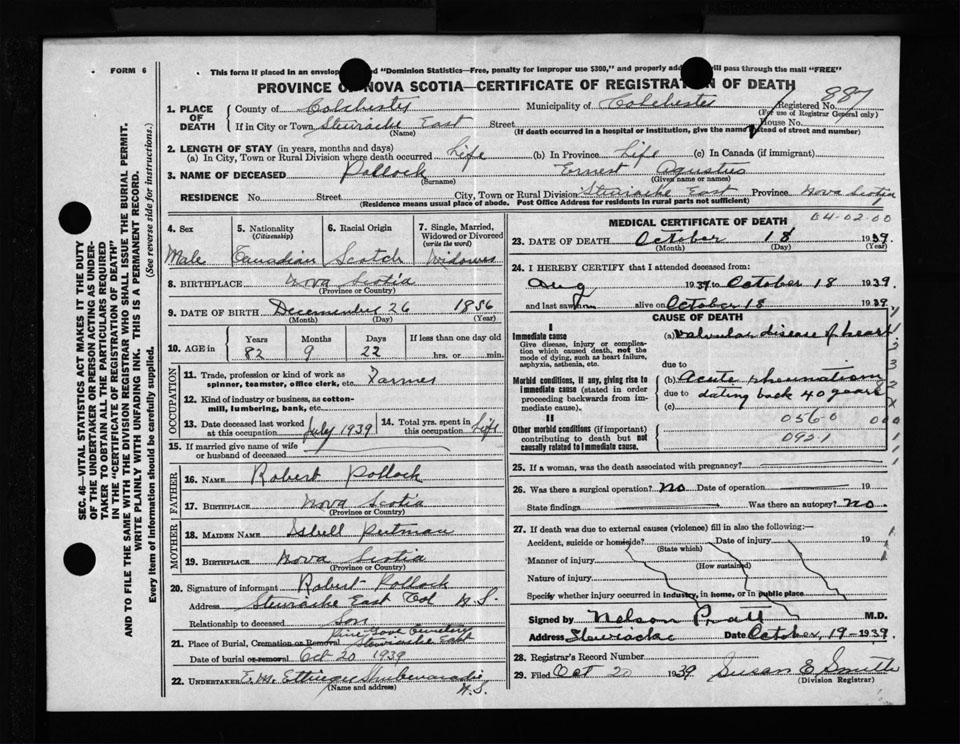 FORM 6
This form if placed in an envelop d "Dominion Statistics—Free, penalty for improper use $300," and properly ad will pass through the mail "FREE"
PROVINCE OF NOVA SCOTIA—CERTIFICATE OF REGISTRATION OF DEATH
887
1. PLACE OF DEATH County of Colchester Municipality of Colchester Registered No.
(For use of Registrar General only)
If in City or Town Stewiacke East Street House No.
(Name) (If death occurred in a hospital or institution, give the name instead of street and number)
2. LENGTH OF STAY (in years, months and days)
(a) In City, Town or Rural Division where death occurred Life (b) In Province Life (c) In Canada (if immigrant)
3. NAME OF DECEASED Pollock Ernest Agustus
(Surname) (Given name or names)
RESIDENCE No. Street City, Town or Rural Division Stewiacke East Province Nova Scotia
(Residence means usual place of abode. Post Office Address for residents in rural parts not sufficient)
SEC. 46—VITAL STATISTICS ACT MAKES IT THE DUTY
OF THE UNDERTAKER OR PERSON ACTING AS UNDER-
TAKER TO OBTAIN ALL THE PARTICULARS REQUIRED
IN THE "CERTIFICATE OF REGISTRATION OF DEATH"
AND TO FILE THE SAME WITH THE DIVISION REGISTRAR WHO SHALL ISSUE THE BURIAL PERMIT.
WRITE PLAINLY WITH UNFADING INK. THIS IS A PERMANENT RECORD.
Every item of information should be carefully supplied. (See reverse side for instructions.)
4. Sex 5. Nationality 6. Racial Origin 7. Single, Married,
(Citizenship) Widowed or Divorced
(write the word)
Male Canadian Scotch Widower
8. BIRTHPLACE Nova Scotia
(Province or Country)
9. DATE OF BIRTH Decemember 26 1856
(Month) (Day) (Year)
10. AGE in Years Months Days If less than one day old
82 9 22 hrs. or min.
OCCUPATION
11. Trade, profession or kind of work as
spinner, teamster, office clerk, etc. Farmer
12. Kind of industry or business, as cotton-
mill, lumbering, bank, etc.
13. Date deceased last worked at this occupation July 1939 14. Total yrs. spent in this occupation Life
15. If married give name of wife
or husband of deceased
FATHER
16. NAME Robert Pollock
17. BIRTHPLACE Nova Scotia
(Province or Country)
MOTHER
18. MAIDEN NAME Isbell Putman
19. BIRTHPLACE Nova Scotia
(Province or Country)
20. Signature of informant Robert Pollock
Address Stewiacke East Col N.S.
Relationship to deceased Son
Pine Grove Cemetery
21. Place of Burial, Cremation or Removal Stewiacke East
Date of burial or removal Oct 20 1939
22. UNDERTAKER E. M. Ettinger Shubenacadie
(Name and address) N.S.
MEDICAL CERTIFICATE OF DEATH 04-02-00
23. DATE OF DEATH October 18 1939
(Month) (Day) (Year)
24. I HEREBY CERTIFY that I attended deceased from:
Aug 1939 to October 18 1939
and last saw him alive on October 18 1939
CAUSE OF DEATH
I
Immediate cause (a) Valvular disease of heart
Give disease, injury or complica-
tion which caused death, not the
mode of dying, such as heart failure,
asphyxia, asthenia, etc.
due to
Morbid conditions, if any, giving rise to (b) Acute rheumatism
immediate cause (stated in order due to dating back 40 years
proceeding backwards from im-
mediate cause). (c)
II 056-0
Other morbid conditions (if important) 092-1
contributing to death but not
causally related to immediate cause.
25. If a woman, was the death associated with pregnancy?
26. Was there a surgical operation? No Date of operation 19
State findings Was there an autopsy? No.
27. If death was due to external causes (violence) fill in also the following:—
Accident, suicide or homicide? Date of injury 19
(State which)
Manner of injury
(How sustained)
Nature of injury
Specify whether injury occurred in industry, in home, or in public place
Signed by Nelson Pratt M.D.
Address Stewiacke Date October, 19—1939.
28. Registrar's Record Number
29. Filed Oct 20 1939 Susan E. Smith
(Division Registrar)